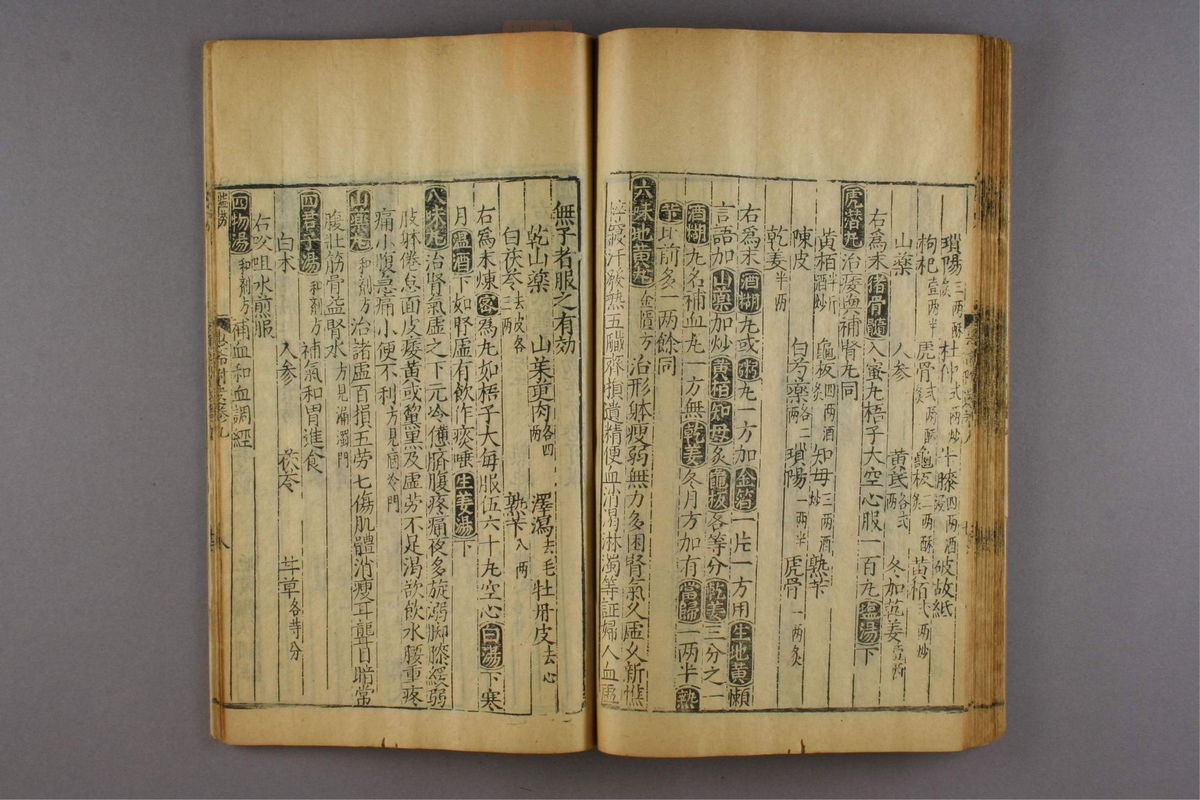 瑣陽三兩酥炙 杜仲弍兩炒 牛膝四兩酒浸 破故紙
枸杞壹兩半 虎骨弍兩酥炙 龜板二兩酥炙 黃栢弍兩炒
山藥 人参 黃芪各弍兩 冬加乾姜
右為末猪骨髓入蜜丸梧子大空心服一百丸塩湯下
虎潛丸治痿與補腎丸同
黃栢半斤酒炒 龜板四兩酒炙 知母三兩酒炒 熟芐
陳皮 白芍藥各二兩 瑣陽一兩半 虎骨一兩炙
乾姜半兩
右為末酒糊丸或粥丸一方加金箔一片一方用生地黃懶
言語加山藥加炒黃栢知母炙龜板各等分乾姜三分之一
酒糊丸名補血丸一方無乾姜冬月方加有當歸一兩半熟
芐比前多一兩餘同
六味地黃丸金匱方治形躰瘦弱無力多困腎氣久虛久新憔
悴寢汗發熱五臟齊損遺精便血消渴淋濁等証婦人血虛
無子者服之有効
乾山藥 山茱萸肉各四兩 澤瀉去毛 牡丹皮去心
白茯苓去皮各三兩 熟芐八兩
右為末煉蜜為丸如梧子大每服伍六十丸空心白湯下寒
月溫酒下如腎虛有飲作痰唾生姜湯下
八味丸治腎氣虛之下元冷憊臍腹疼痛夜多旋弱脚膝緩弱
肢躰倦怠面皮痿黃或黧黑及虛劳不足渴欲飲水腰重疼
痛小腹急痛小便不利方見痼冷門
山藥丸和剤方治諸虛百損五劳七傷肌體消瘦耳聾目暗常
服壯筋骨益腎水方見濁門
四君子湯和剤方補氣和胃進食
白术 人参 茯苓 甘草各等分
右㕮咀水煎服
四物湯和剤方補血和血調經